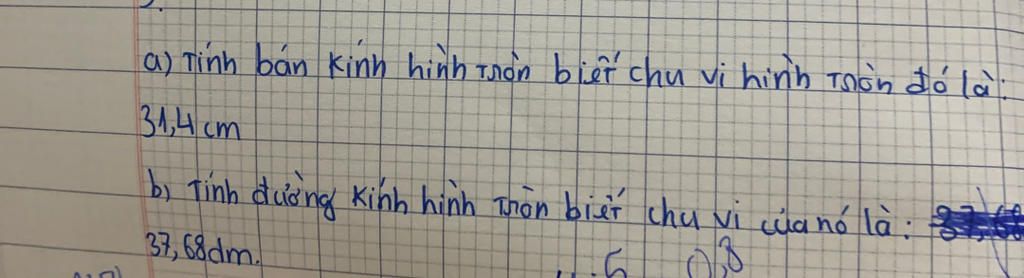 a) Tính bán kính hình tròn biết chu vi hình tròn đó là:
31,4 cm
b) Tính đường kính hình tròn biết chu vi của nó là:
37,68dm.